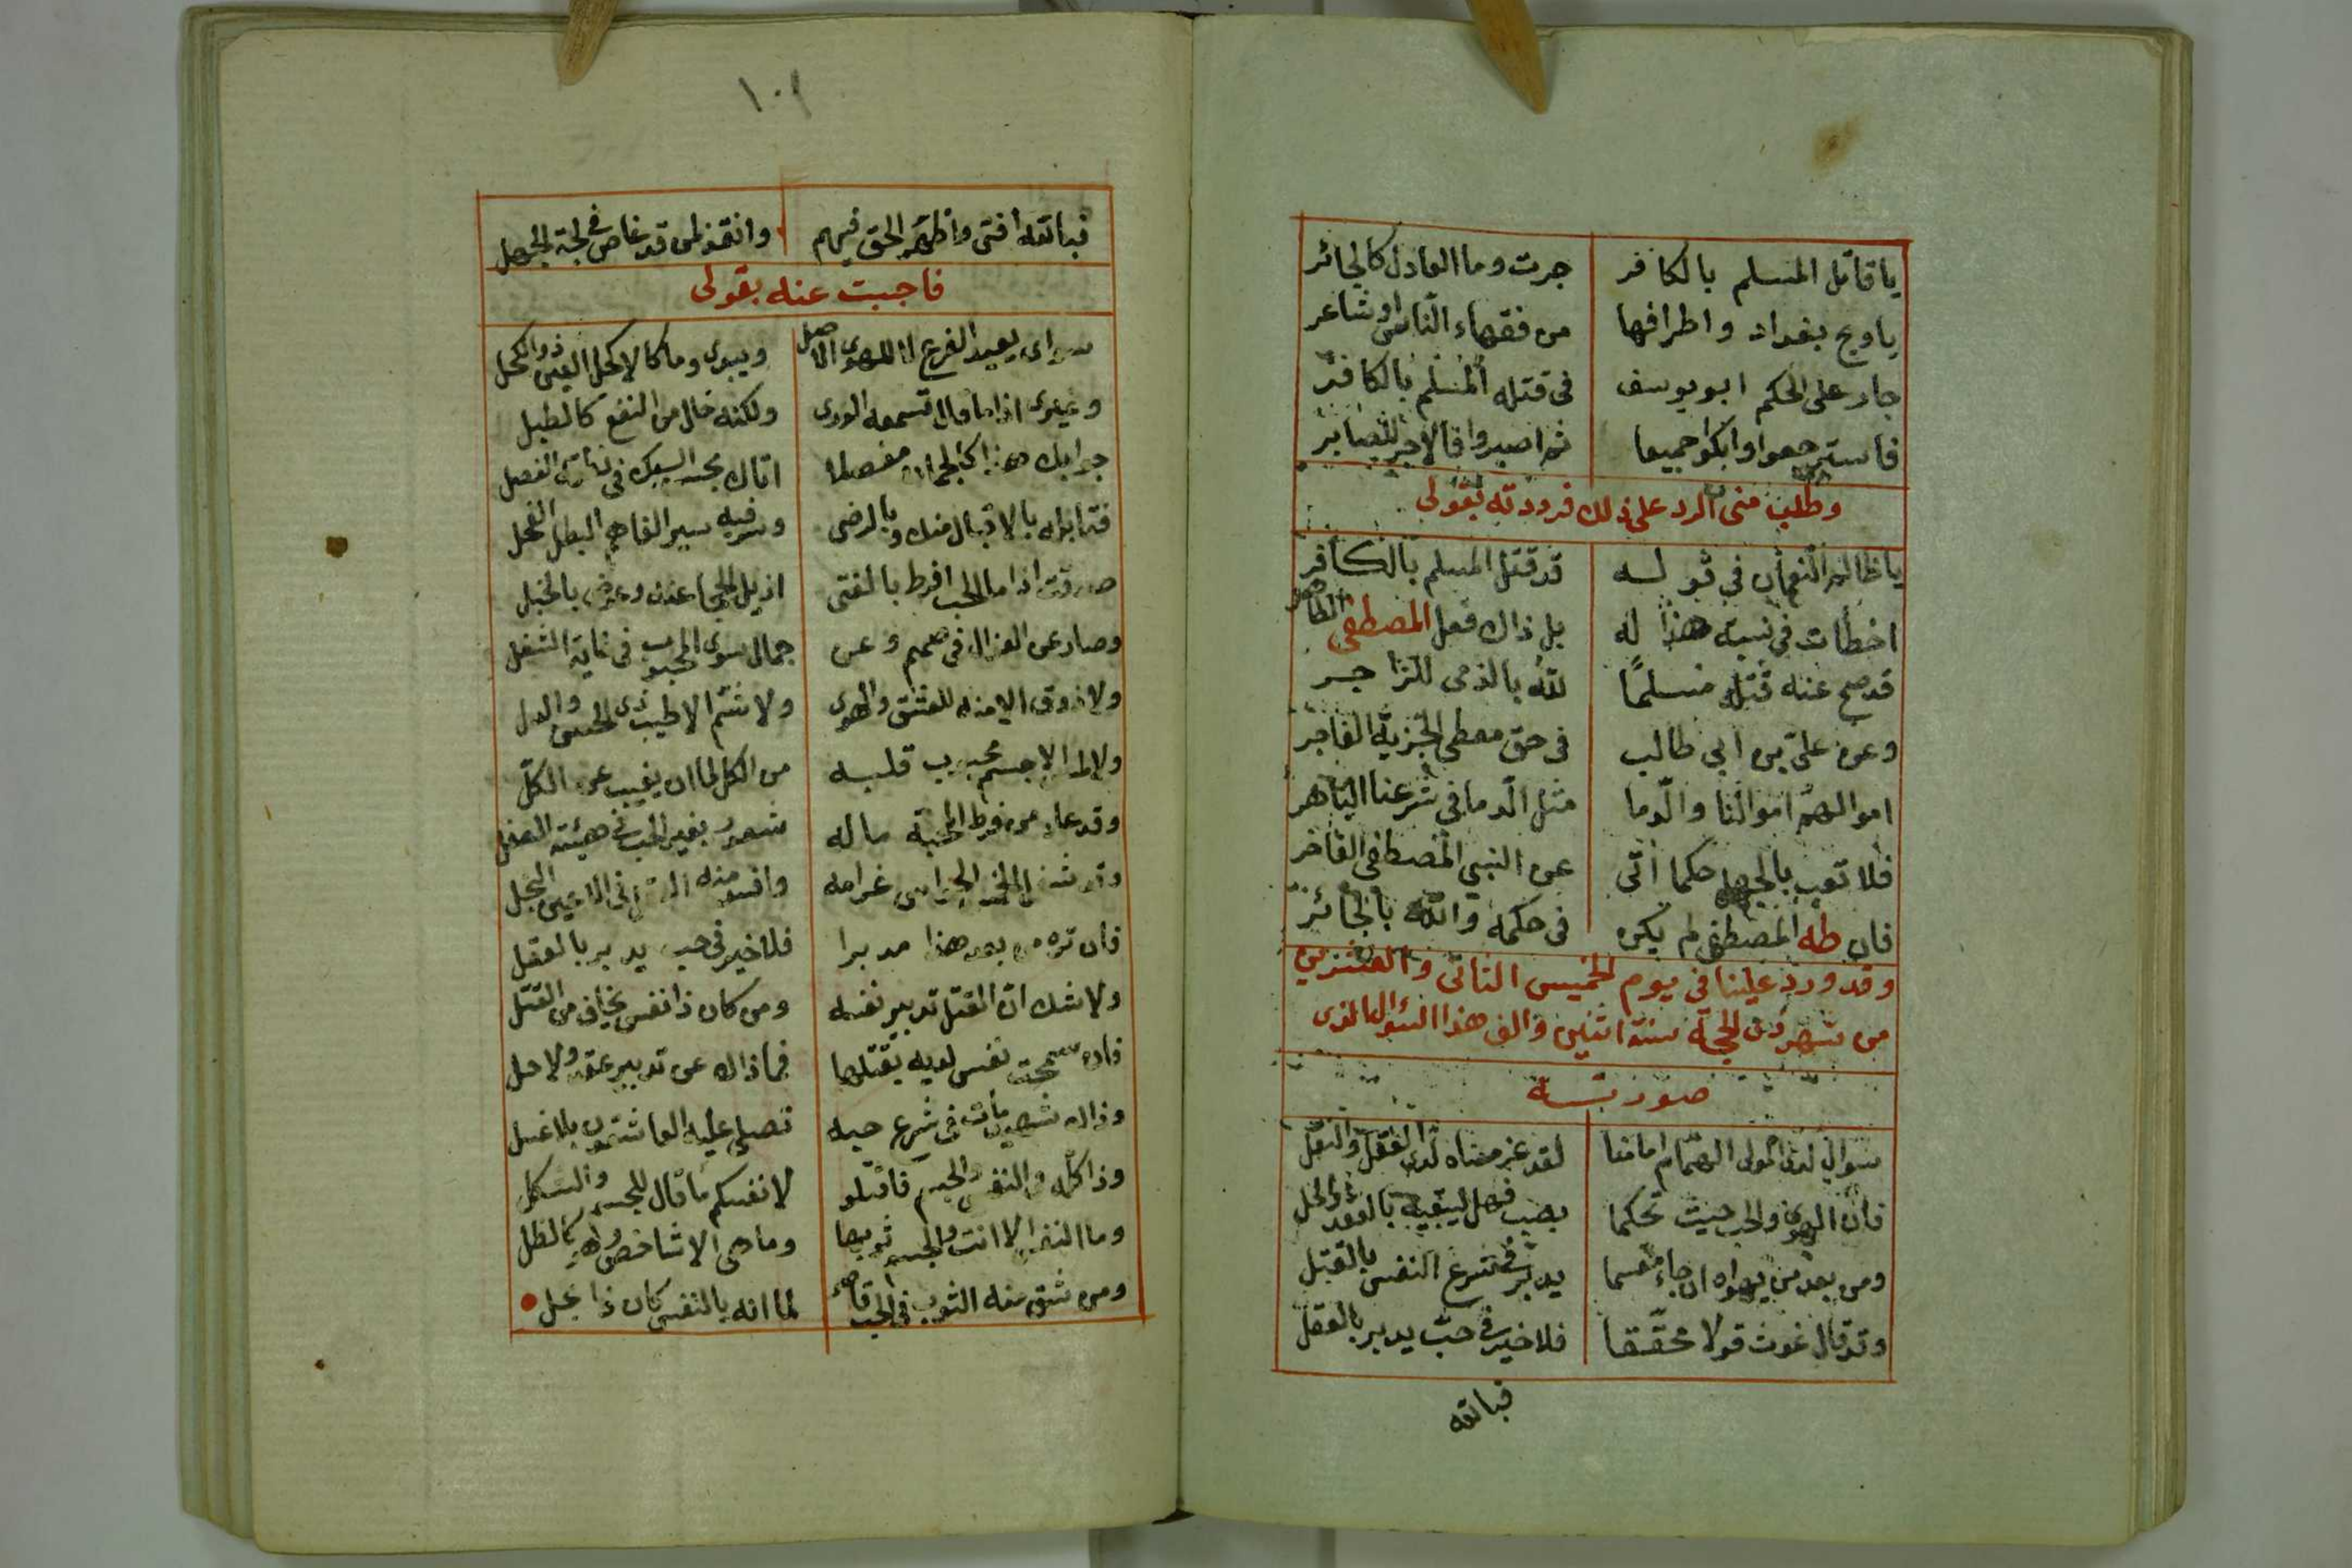 يا قاتل المسلم بالكافر جرت وما العادل كالجائر
يا ويح بغداد واطرافها من فقهاء الناس او شاعر
جار على الحكم ابو يوسف فى قتله المسلم بالكافر
فاسترجعوا وابكوا جميعا ثم اصبروا فالاجر للصابر
وطلب منى الرد على ذلك فرددته بقولى
يا ظالم النعمان في قوله قد قتل المسلم بالكافر
اخطأت في نسبة هذا له بل ذاك فعل المصطفى الطاهر
قد صح عنه قتله مسلمًا لله بالذمى للزاجر
وعن على بن ابي طالب فى حق معطى الجزية الفاجر
اموالهم اموالنا والدما مثل الدما في شرعنا الباهر
فلا تعب بالجهل حكما اتى عن النبي المصطفى الفاخر
فان طه المصطفى لم يكن فى حكمه والله بالجائر
وقد ورد علينا فى يوم الخميس الثانى والعشرين
من شهر ذى الحجة سنة اثنين والف هذا السؤال الذى
صورته
سوالي لدى المولى الهمام امامنا لقد عز معناه لدى العقل والنقل
فان الهوى والحب حيث تحكما بصب فهل يبقيه بالعقد والحل
ومن بعد من يهواه ان جاء مقسما يدبر في شرع النفس بالقتل
وقد قال غوث قولا محققا فلا خير في حب يدبر بالعقل
فبالله
١٠١
فبالله افتى واظهر الحق فيهم وانقذ لمن قد غاص في لجة الجهل
فاجبت عنه بقولى
سواى يعيد الفرع للهوى الاصل ويبدى وما كالاكحل العين ذو الكحل
وغيرى اذا ما قال تسمعه الورى ولكنه خال من النفع كالطبل
جوابك هذا كالجمان مفصلا اتاك بحسن السبك فى الفصل
فقابله بالاقبال منك وبالرضى وسر فيه سير الفاهم البطل الفحل
صدقت اذا ما الحب افرط بالفتى ازيل الحجا عنه وعوض بالخبل
وصار عن العزال فى صمم وعن جمال سوى المحبوب فى غاية الشغل
ولا ذوق الا منه للعشق والهوى ولا شم الا طيب ذى الحسن والدل
ولا الا جسم محبوب قلبه من الكل لما ان يغيب عن الكل
وقد عاد من فرط المحبة ما له شعور بغير الحب في هيئة العقل
غرامه
فان تره من بعد هذا مدبرا فلا خير فى حب يدبر بالعقل
ولا شك ان القتل تدبير نفسه ومن كان ذا نفس يخاف من القتل
فان سمحت نفس لديه بقتلها فما ذاك عن تدبير عقد ولا حل
وذاك شهيد مات فى شرع حبه تصلى عليه العاشقون بلا غسل
وذا كله فى النفس والجسم فاقتلو لانفسكم ما قال للجسم والشكل
وما النفس الا انت والجسم ثوبها وما هى الا شاخص وهو كالظل
ومن شق منه الثوب فى الحب قاصر لما انه بالنفس كان ذا بخل